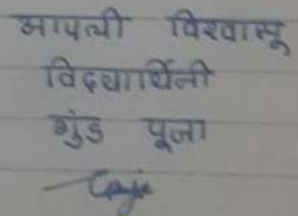 आपली विश्वासू
विद्यार्थिनी
गुंड पूजा